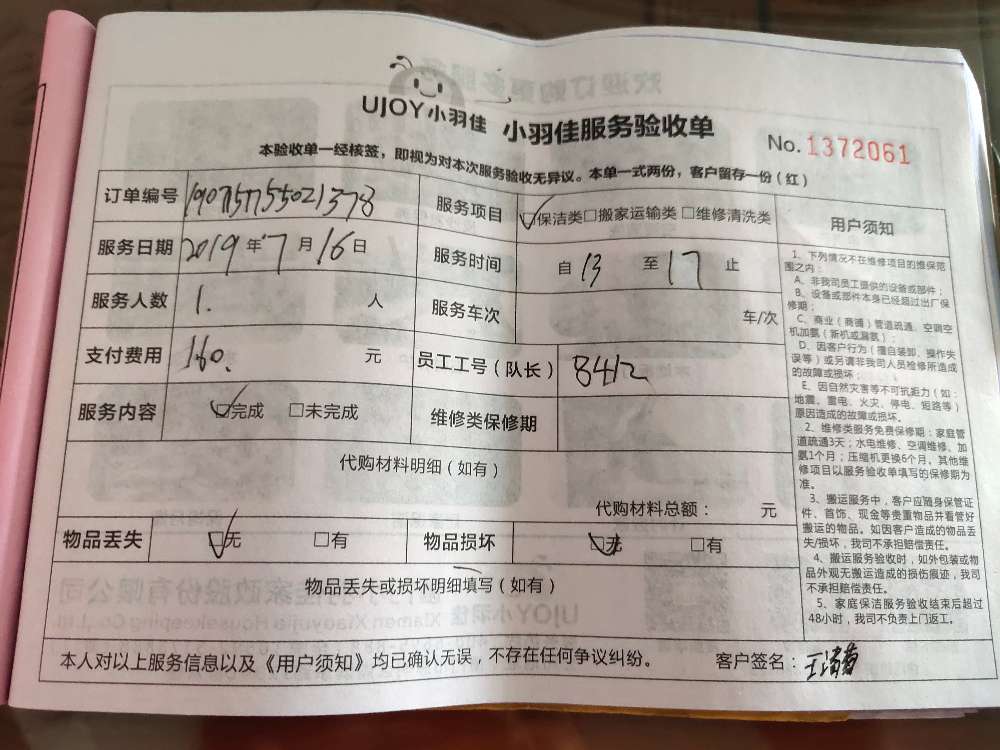 UJOY小羽佳 小羽佳服务验收单
No. 1372061
本验收单一经核签，即视为对本次服务验收无异议。本单一式两份，客户留存一份（红）
订单编号 190715755021378 服务项目 ☑保洁类□搬家运输类□维修清洗类
服务日期 2019年7月16日 服务时间 自 13 至 17 止
服务人数 1. 人 服务车次 车/次
支付费用 160. 元 员工工号（队长） 8412
服务内容 ☑完成 □未完成 维修类保修期
代购材料明细（如有）
代购材料总额： 元
物品丢失 ☑无 □有 物品损坏 ☑无 □有
物品丢失或损坏明细填写（如有）
用户须知
1、下列情况不在维修项目的维保范
围之内：
A、非我司员工提供的设备或部件；
B、设备或部件本身已经超过出厂保
修期；
C、商业（商铺）管道疏通、空调空
机加氨（新机或漏氨）；
D、因客户行为（擅自装卸、操作失
误等）或另请非我司人员检修所造成
的故障或损坏；
E、因自然灾害等不可抗拒力（如：
地震、雷电、火灾、停电、短路等）
原因造成的故障或损坏。
2、维修类服务免费保修期：家庭管
道疏通3天；水电维修、空调维修、加
氨1个月；压缩机更换6个月，其他维
修项目以服务验收单填写的保修期为
准。
3、搬运服务中，客户应随身保管证
件、首饰、现金等贵重物品并看管好
搬运的物品。如因客户造成的物品丢
失/损坏，我司不承担赔偿责任。
4、搬运服务验收时，如外包装或物
品外观无搬运造成的损伤痕迹，我司
不承担赔偿责任。
5、家庭保洁服务验收结束后超过
48小时，我司不负责上门返工。
本人对以上服务信息以及《用户须知》均已确认无误，不存在任何争议纠纷。 客户签名：